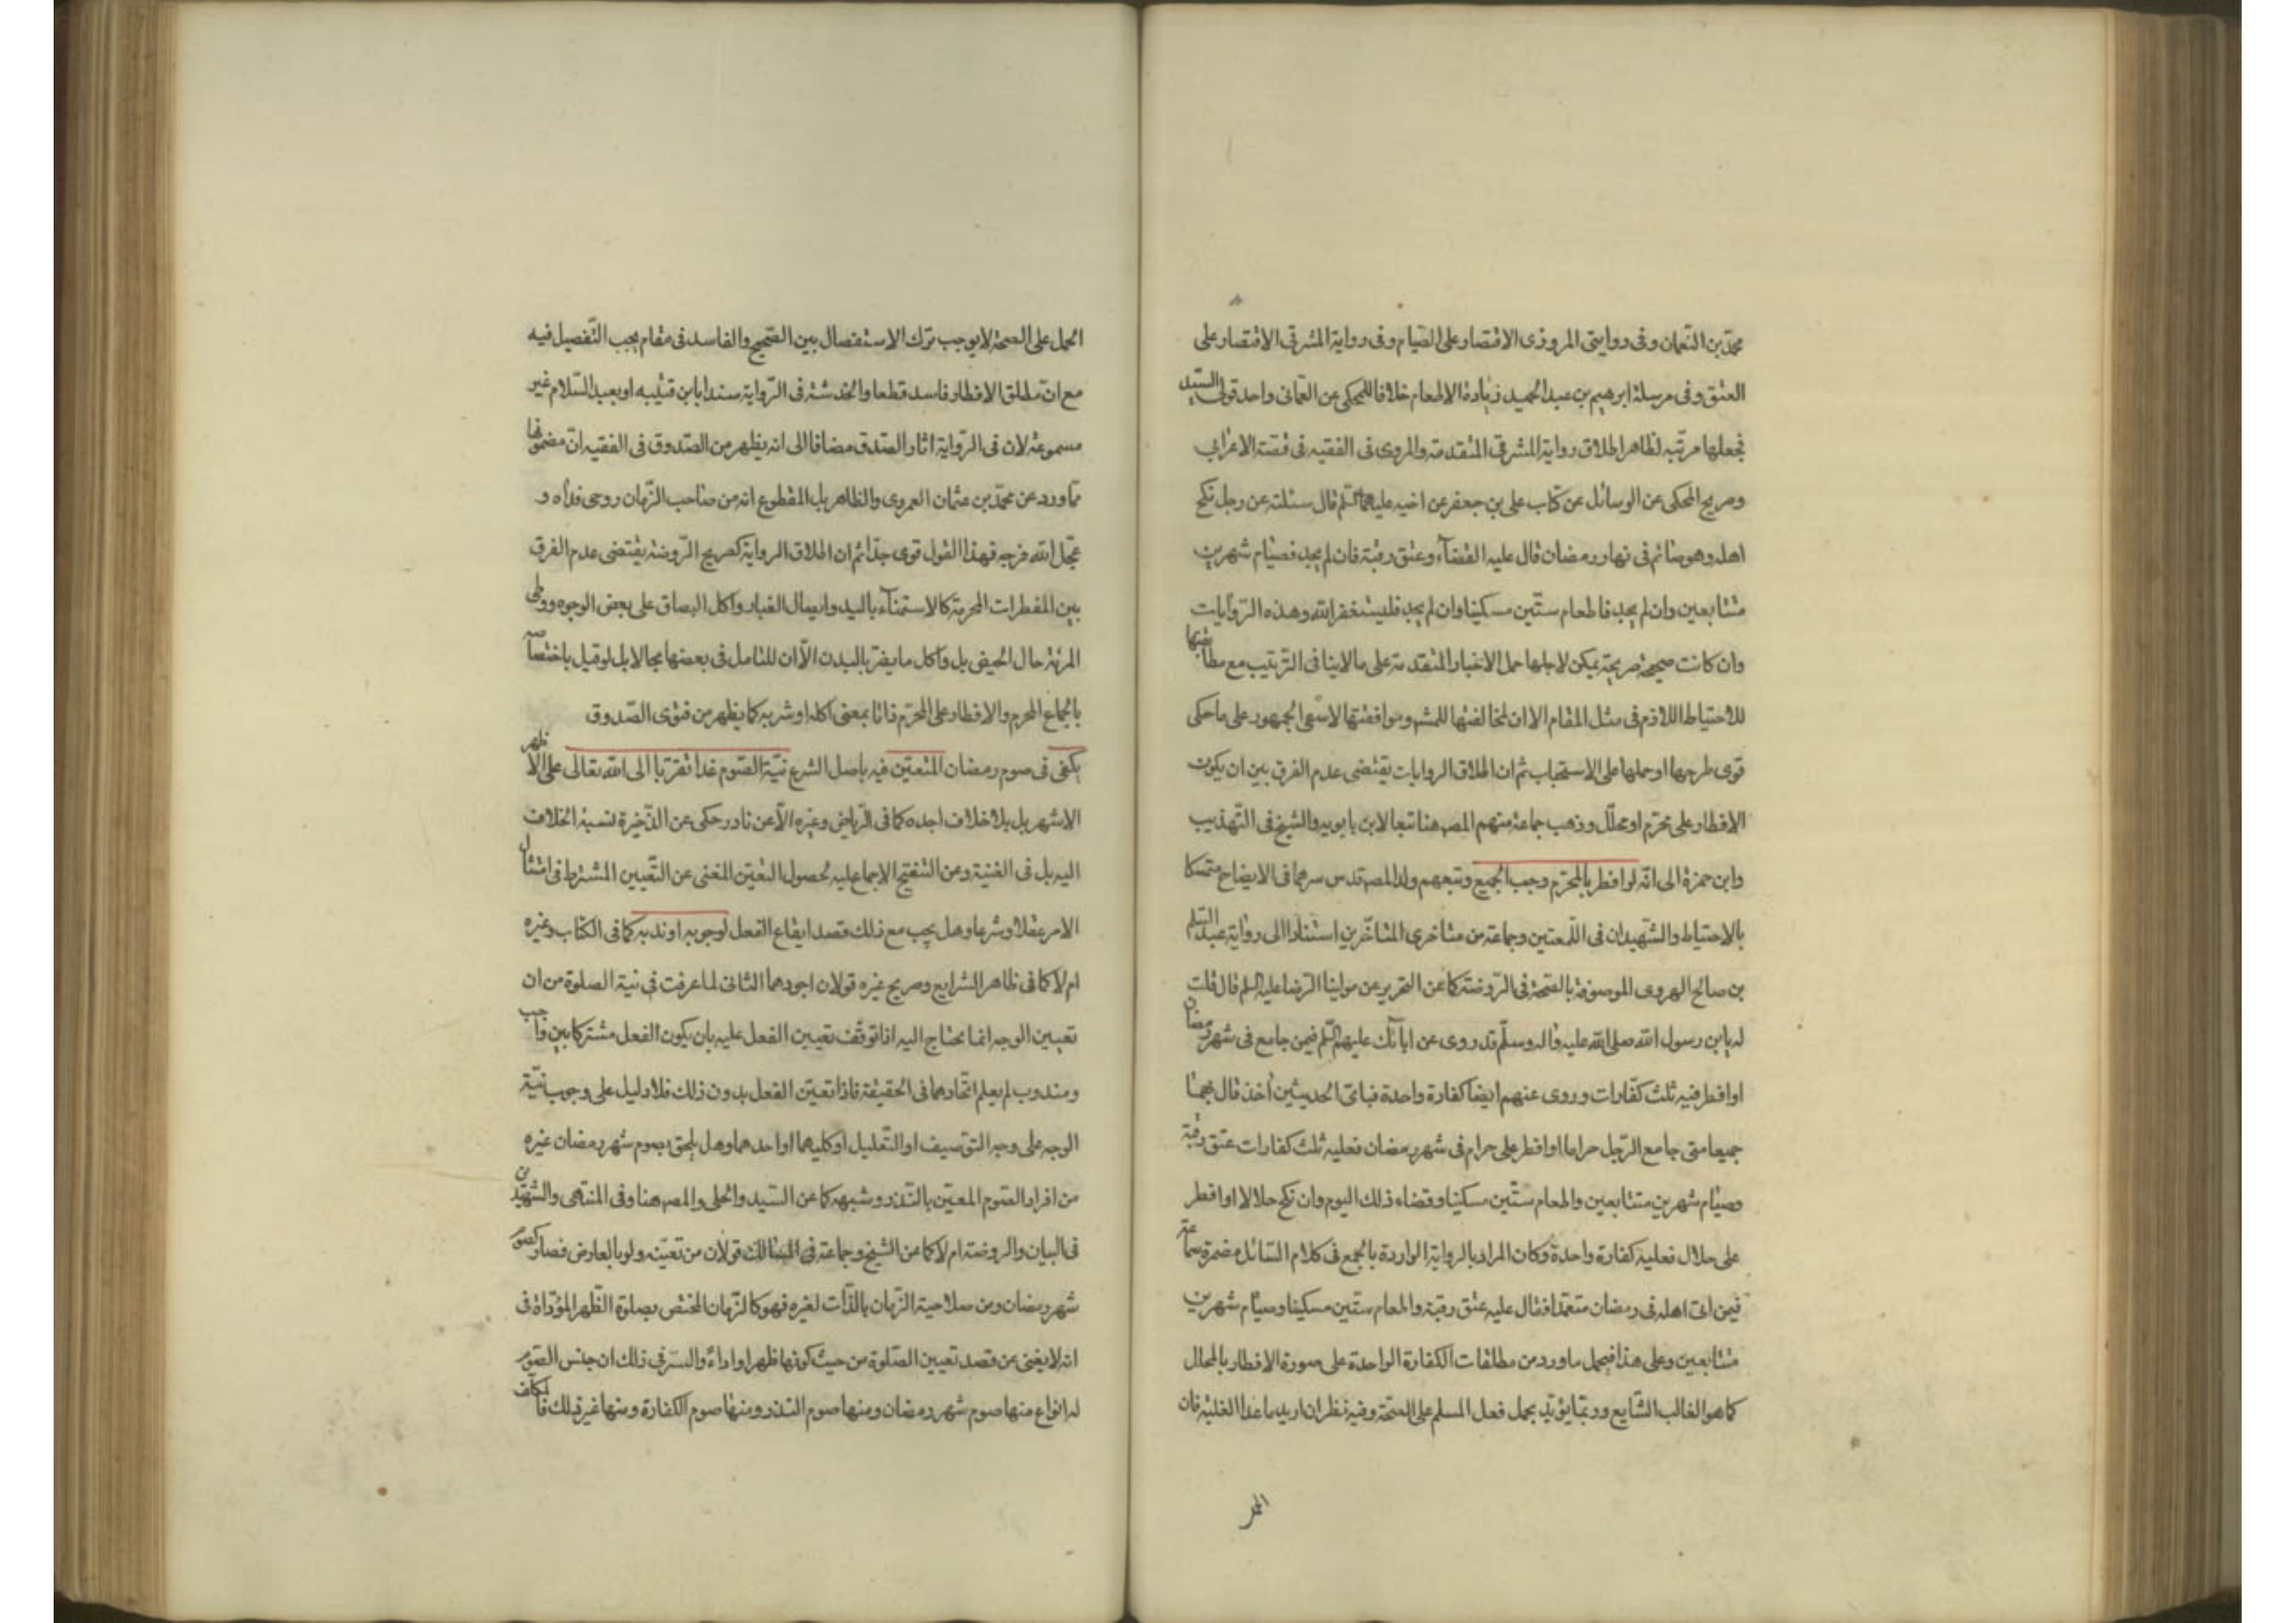 محمّد بن النّعمان وفى روايتى المروزى الاقتصار على الصّيام وفى رواية المشرقى الاقتصار على
العتق وفى مرسلة ابرهيم بن عبد الحميد زيادة الاطعام خلافا للمحكى عن العمّانى واحد قولى السيّد
فجعلها مرتّبه لظاهر اطلاق رواية المشرقى المتقدمة والمروى فى الفقيه فى قصّة الاعرابي
وصريح المحكى عن الوسائل عن كتاب على بن جعفر عن اخيه عليهما السّلم قال سئلته عن رجل نكح
اهله وهو صائم فى نهار رمضان قال عليه القضآء وعتق رقبة فان لم يجد فصيام شهرين
متتابعين وان لم يجد فاطعام ستّين مسكينا وان لم يجد فليستغفر الله وهذه الرّوايات
وان كانت صحيحة صريحة يمكن لاجلها حمل الاخبار المتقدمة على مالاينافى الترتيب مع مطابقتها
للاحتياط اللازم فى مثل المقام الا ان لمخالفتها للمشهور وموافقتها لاسّعى الجمهور على ماحكى
قوى طرحها او حملها على الاستحباب ثم ان اطلاق الروايات يقتضى عدم الفرق بين ان يكون
الافطار على محرّم او محلّل وذهب جماعة منهم المصـ هنا تبعا لابن بابويه والشيخ فى التّهذيب
وابن حمزة الى انّه لو افطر بالمحرّم وجب الجميع وتبعهم ولد المصـ قدس سرهما فى الايضاح متمسكا
بالاحتياط والشّهيدان فى اللّمعتين وجماعة من متاخرى المتاخّرين استنادا الى رواية عبد السّلم
بن صالح الهروى الموصوفة بالصّحّة فى الرّوضة كما عن التحرير عن مولينا الرّضا عليه السّلم قال قلت
له يابن رسول الله صلى الله عليه واله وسلّم قد روى عن ابائك عليهم السّلم فيمن جامع فى شهر رمضان
او افطر فيه ثلث كفّارات وروى عنهم ايضا كفارة واحدة فباىّ الحديثين أخذ قال بهما
جميعا متى جامع الرّجل حراما او افطر على حرام فى شهر رمضان فعليه ثلث كفارات عتق رقبة
وصيام شهرين متتابعين واطعام ستّين مسكينا وقضاء ذلك اليوم وان نكح حلالا او افطر
على حلال فعليه كفارة واحدة وكان المراد بالرواية الواردة بالجمع فى كلام السّائل مضمرة سماعة
فيمن اتى اهله فى رمضان متعمّدا فقال عليه عتق رقبة واطعام ستّين مسكينا وصيام شهرين
متتابعين وعلى هذا فيحمل ماورد من مطلقات الكفارة الواحدة على صورة الافطار بالمحلل
كما هو الغالب الشّايع وربّما يؤيّد بحمل فعل المسلم على الصحّة وفيه نظر ان اريد ماعدا الغلبة فان
الحمل
الحمل على الصحة لا يوجب ترك الاستفصال بين الصّحيح والفاسد فى مقام يجب التّفصيل فيه
مع انّ مطلق الافطار فاسد قطعا والخدشة فى الرّواية سندا بابن قتيبه او بعبد السّلام غير
مسموعة لان فى الرّواية اثار الصّدق مضافا الى انه يظهر من الصّدوق فى الفقيه انّ مضمونها
ممّا ورد عن محمّد بن عثمان العمروى والظاهر بل المقطوع انه من صاحب الزّمان روحى فداه و
عجّل الله فرجه فهذا القول قوى جدّا ثم ان اطلاق الرواية كصريح الرّوضة يقتضى عدم الفرق
بين المفطرات المحرمة كالاستمنآء باليد وايصال الغبار واكل البصاق على بعض الوجوه ووطى
المرئة حال الحيض بل واكل مايضرّ بالبدن الاّ ان للتامل فى بعضها مجالا بل لو قيل باختصاصه
بالجماع المحرم والافطار على المحرّم ذاتا بمعنى اكله او شربه كما يظهر من فتوى الصّدوق
يكفى فى صوم رمضان المتعيّن فيه باصل الشرع نيّة الصّوم غدا تقرّبا الى الله تعالى على الاظهر
الاشهر بل بلاخلاف اجده كما فى الرّياض وغيره الاّ عن نادر حكى عن الذّخيرة نسبة الخلاف
اليه بل فى الغنية وعن التنقيح الاجماع عليه لحصول التعيّن المغنى عن التّعيين المشترط فى امتثال
الامر عقلا وشرعا وهل يجب مع ذلك قصد ايقاع الفعل لوجوبه او ندبه كما فى الكتاب وغيره
ام لا كما فى ظاهر الشرايع وصريح غيره قولان اجودهما الثانى لما عرفت فى نية الصلوة من ان
تعيين الوجه انما يحتاج اليه اذا توقّف تعيين الفعل عليه بان يكون الفعل مشتركا بين واجب
ومندوب لم يعلم اتّحادهما فى الحقيقة فاذا تعيّن الفعل بدون ذلك فلا دليل على وجوب نيّة
الوجه على وجه التوّصيف او التّعليل او كليهما او احدهما وهل يلحق بصوم شهر رمضان غيره
من افراد الصّوم المعيّن بالنّذر وشبهه كما عن السّيد والحلى والمصـ هنا وفى المنتهى والشّهيدين
فى البيان والروضة ام لا كما عن الشيخ وجماعة فى المسالك قولان من تعيّنه ولو بالعارض فصار كصوم
شهر رمضان ومن صلاحية الزّمان بالذّات لغيره فهو كالزّمان المختصّ بصلوة الظّهر المؤدّاة فى
انه لا يغنى عن قصد تعيين الصّلوة من حيث كونها ظهرا واداءً والسرّ فى ذلك ان جنس الصّوم
له انواع منها صوم شهر رمضان ومنها صوم النّذر ومنها صوم الكفارة ومنها غير ذلك فالمكلّف